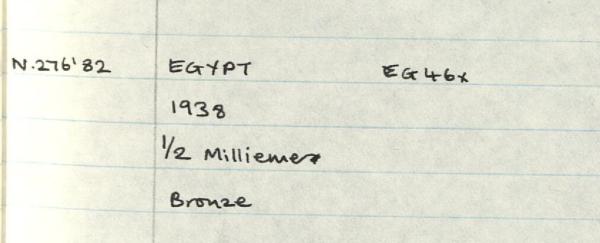 N.276'82 EGYPT EG46x
1938
1/2 Millieme
Bronze